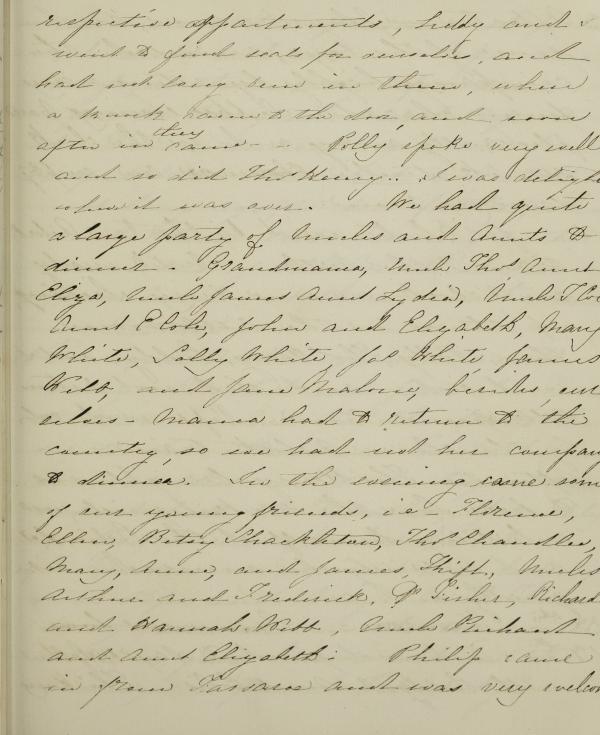 respective appartments, Liddy and I
went to find seats for ourselves, and
had not long been in them, when
a knock came to the door, and soon
after in they came - - Polly spoke very well
and so did Thos Henry.. I was delight
when it was over. We had quite
a large party of Uncles and Aunts to
dinner - Grandmama, Uncle Thos Aunt
Eliza, Uncle James Aunt Lydia, Uncle
Aunt John and Elizabeth, Mary
White, Sally White, Jos White, James
Webb, and Jane Malone, besides our
selves - Mama had to return to the
country, so we had not her company
to dinner. In the evening came som
of our young friends, i e - Florence,
Ellen, Betsy Shackleton, Thos Chandlee,
Mary, Anne, and James Thift, Uncles
Arthur and Frederick, Dr Fisher, Richard
and Hannah Webb, Uncle Richard
and Aunt Elizabeth: Philip came
in from and was very welcom